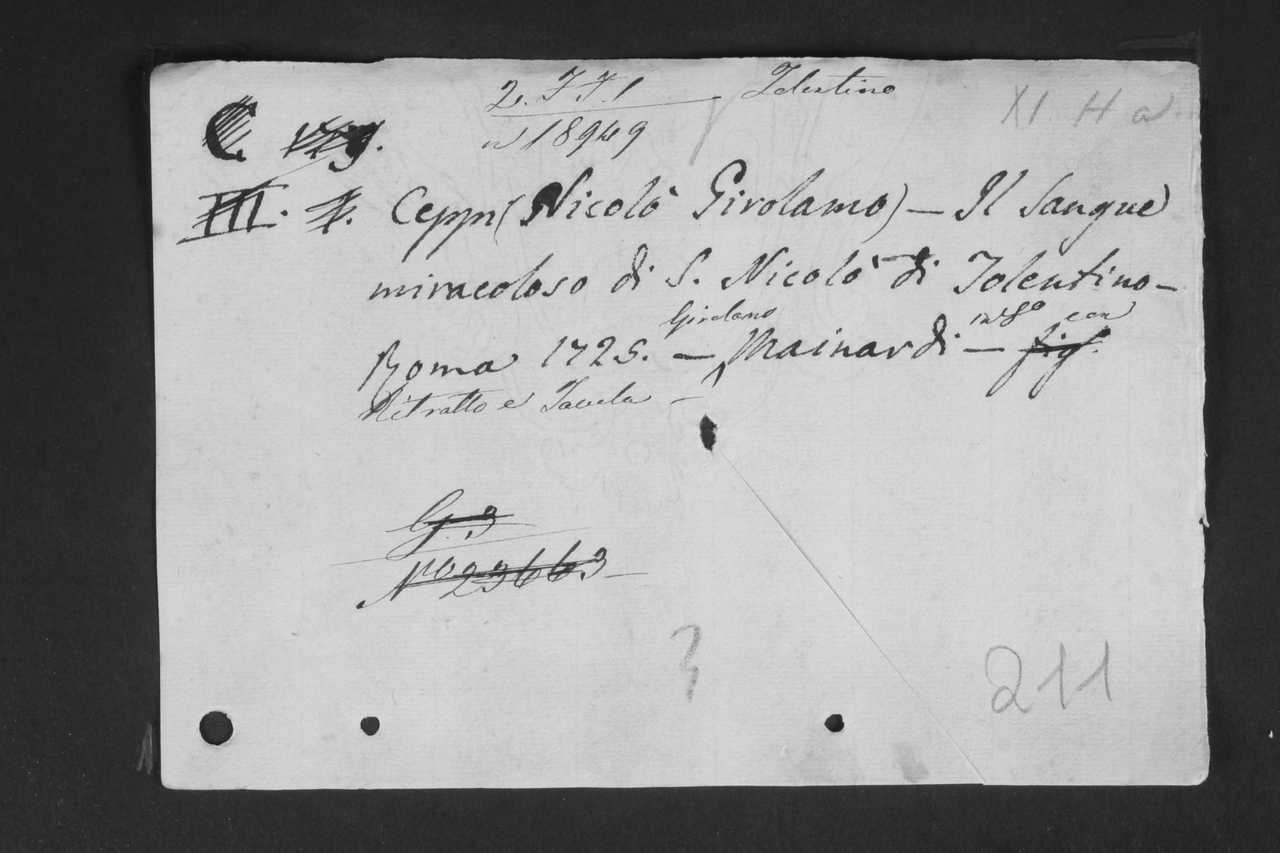 2. F F. 1 — Tolentino
XI H a
n 18949
C.
III. Ceppi (Nicolò Girolamo) — Il Sangue
miracoloso di S. Nicolò di Tolentino –
Girolamo in 8º con
Roma 1725. — Mainardi — fig.
Ritratto e Tavola –
G. 3
Nº 23663 –
3
211